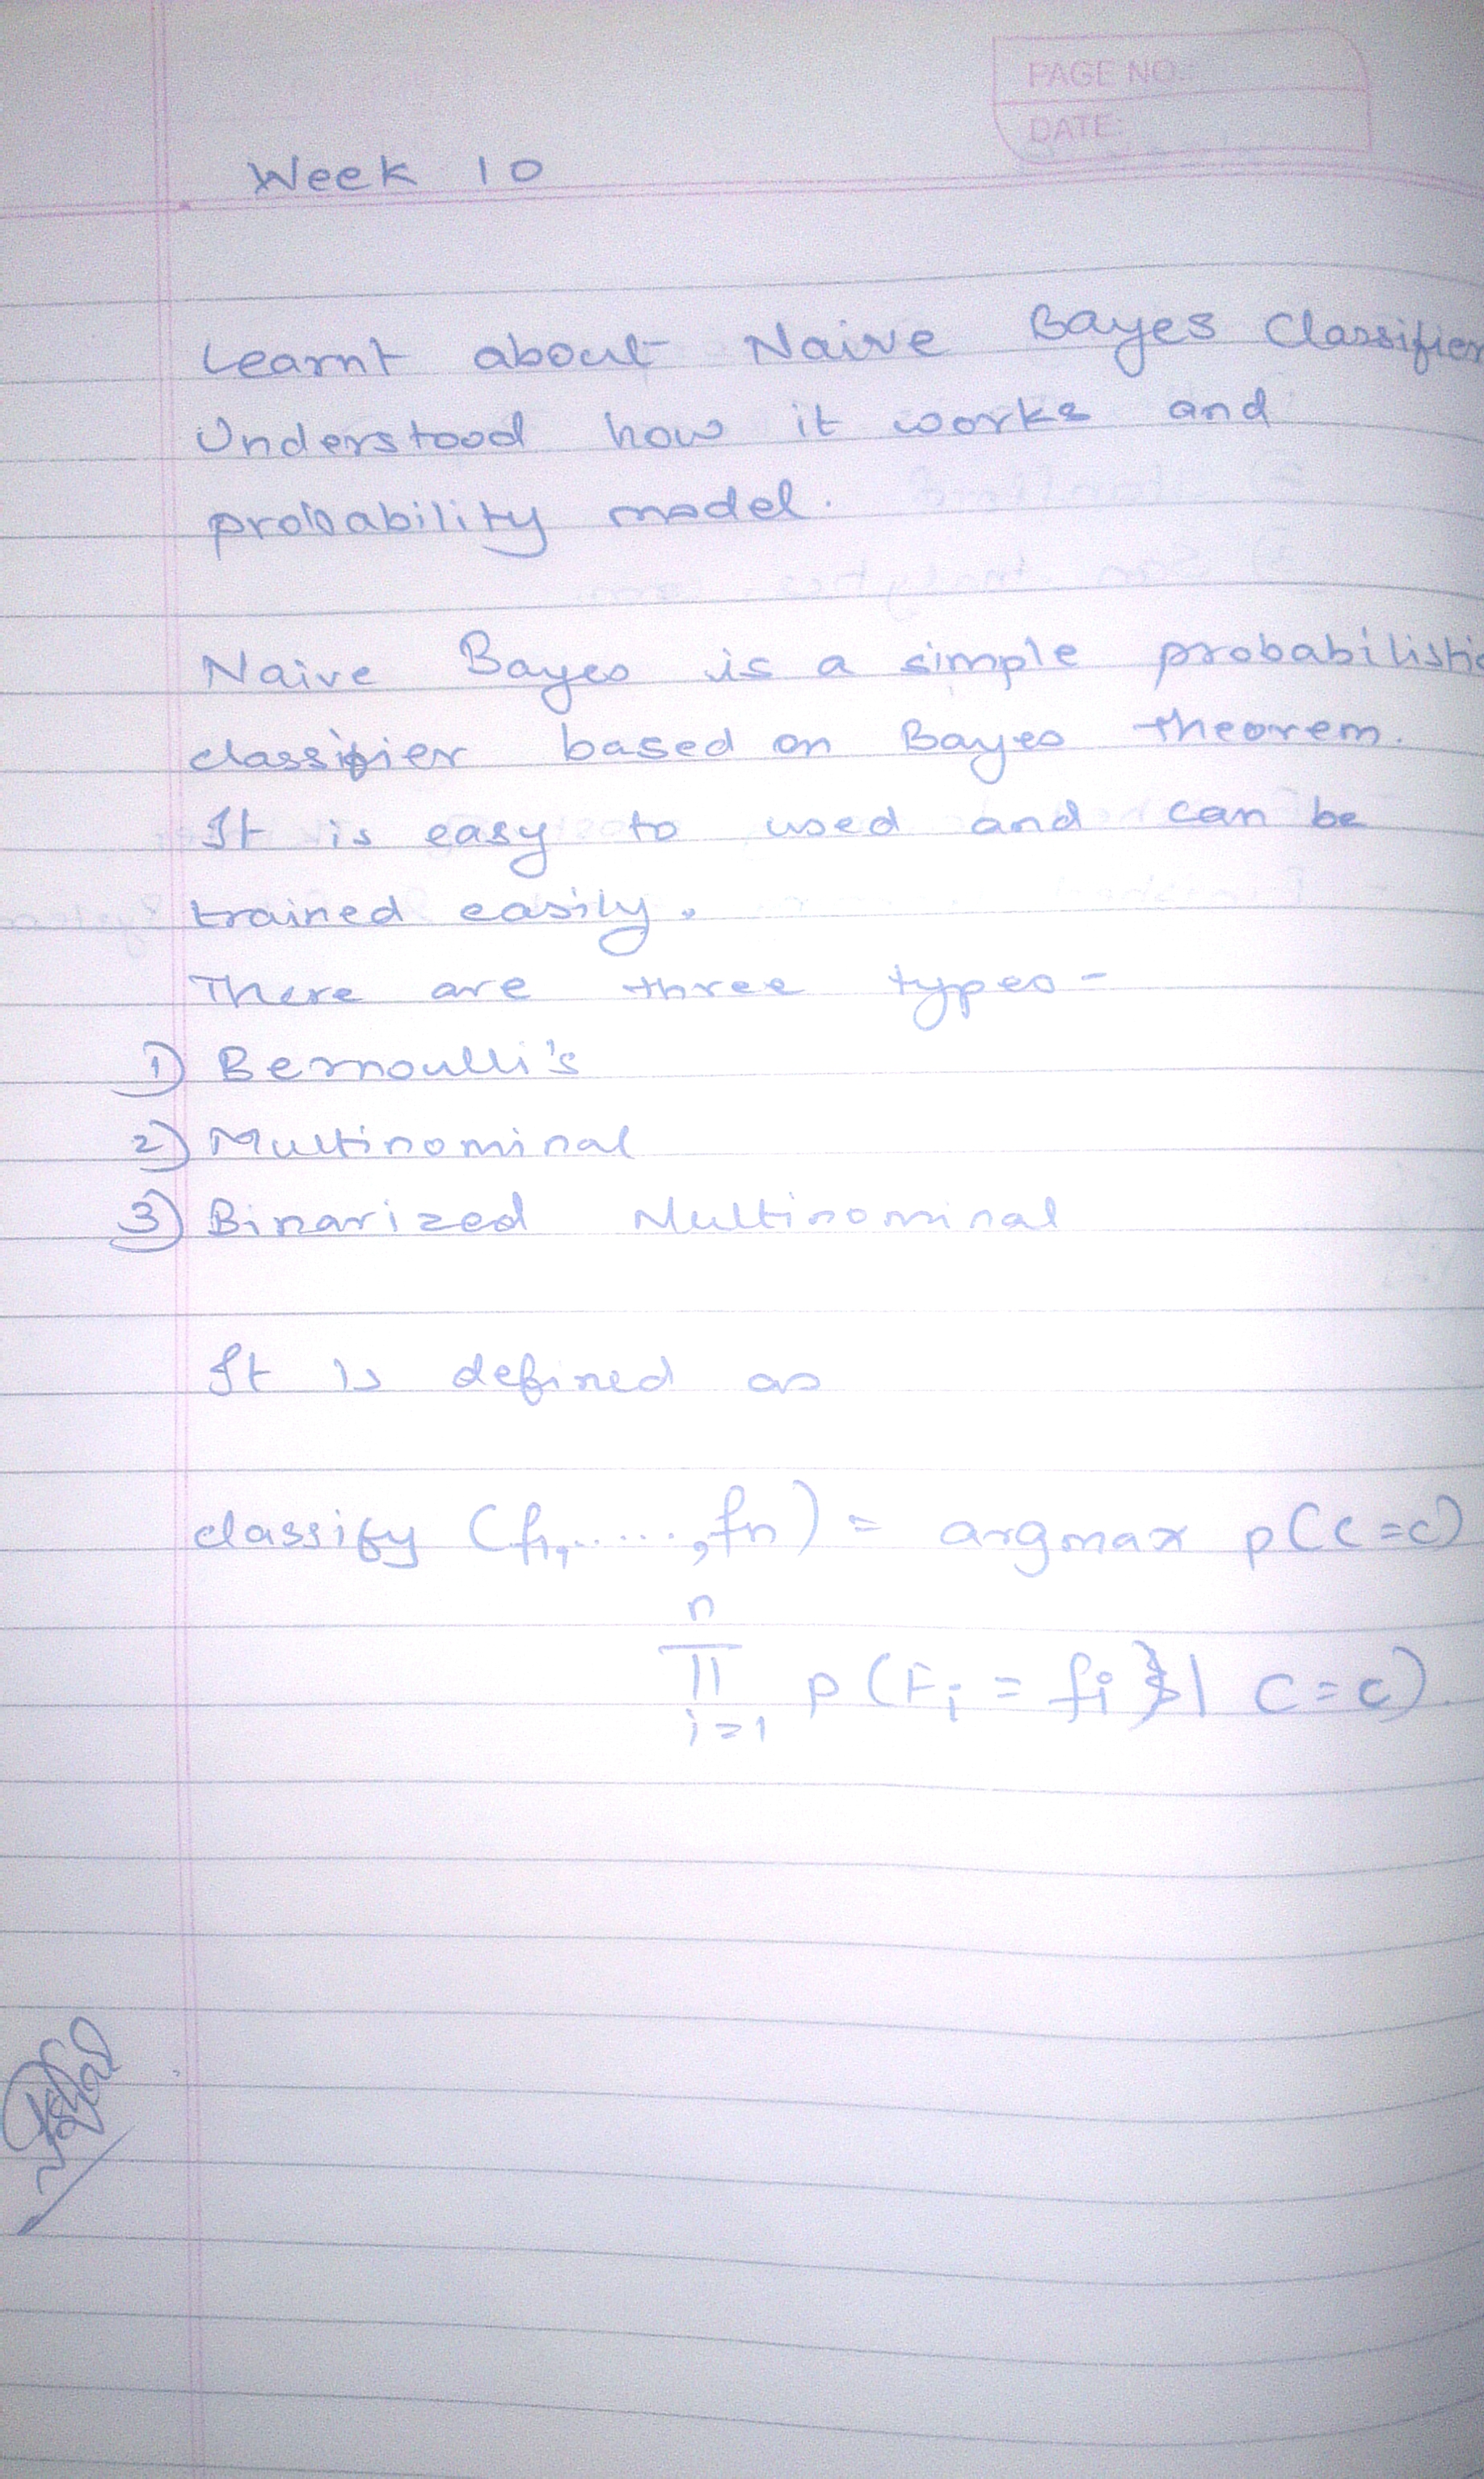 PAGE NO.:
DATE:
Week 10
Learnt about Naive Bayes Classifier
Understood how it works and
probability model.
Naive Bayes is a simple probabilistic
classifier based on Bayes theorem.
It is easy to used and can be
trained easily.
There are three types -
1) Bernoulli's
2) Multinominal
3) Binarized Multinominal
It is defined as
classify (f1,......,fn) = argmax p(C=c)
n
Π p(Fi = fi | C=c).
i=1